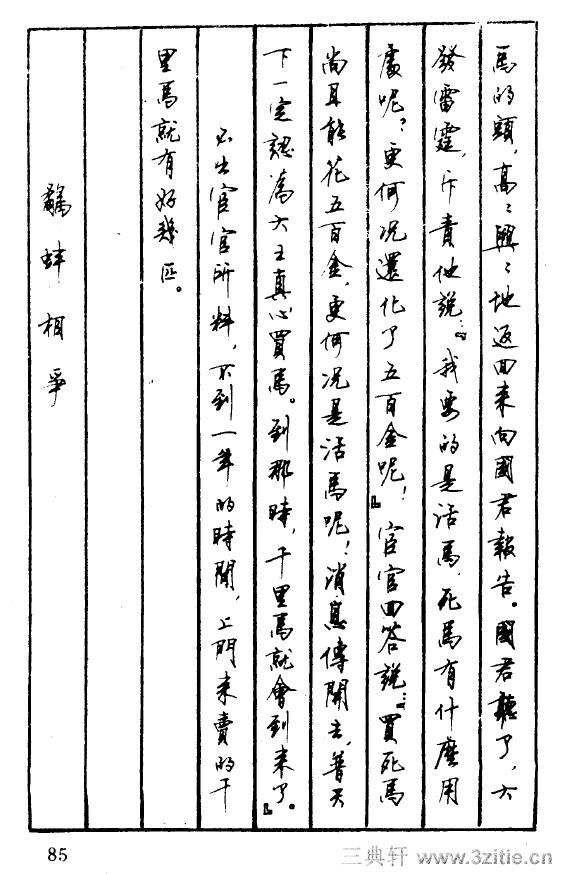 馬的頭，高〻興〻地返回来向國君報告。國君聽了，大
發雷霆，斥責他説：『我要的是活馬，死馬有什麼用
處呢？更何况還化了五百金呢！』宦官回答説：『買死馬
尚且能花五百金，更何况是活馬呢！消息傳開去，普天
下一定認為大王真心買馬。到那時，千里馬就會到来了。』
不出宦官所料，不到一年的時間，上門来賣的千
里馬就有好幾匹。
鷸蚌相爭
85
三典轩 www.3zitie.cn